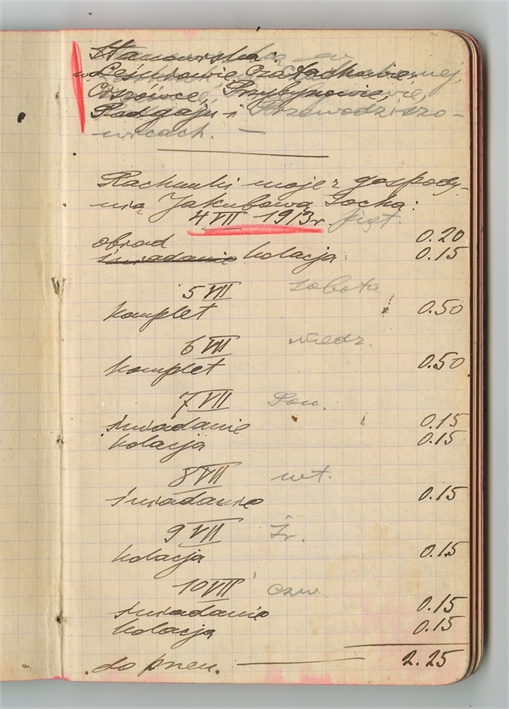 w Leśniowie, Czatachowie,
i
wicach. —
Rachunki moje z gospody-
nią Jakubową Socha:
4 VII 1913 r. piąt.
obiad 0.20
śniadanie kolacja. 0.15
5 VII sobota
komplet 0.50
6 VII niedz.
komplet 0.50
7 VII Pon.
śniadanie 0.15
kolacja 0.15
8 VII wt.
śniadanie 0.15
9 VII Śr.
kolacja 0.15
10 VII czw
śniadanie 0.15
kolacja 0.15
do pren. 2.25